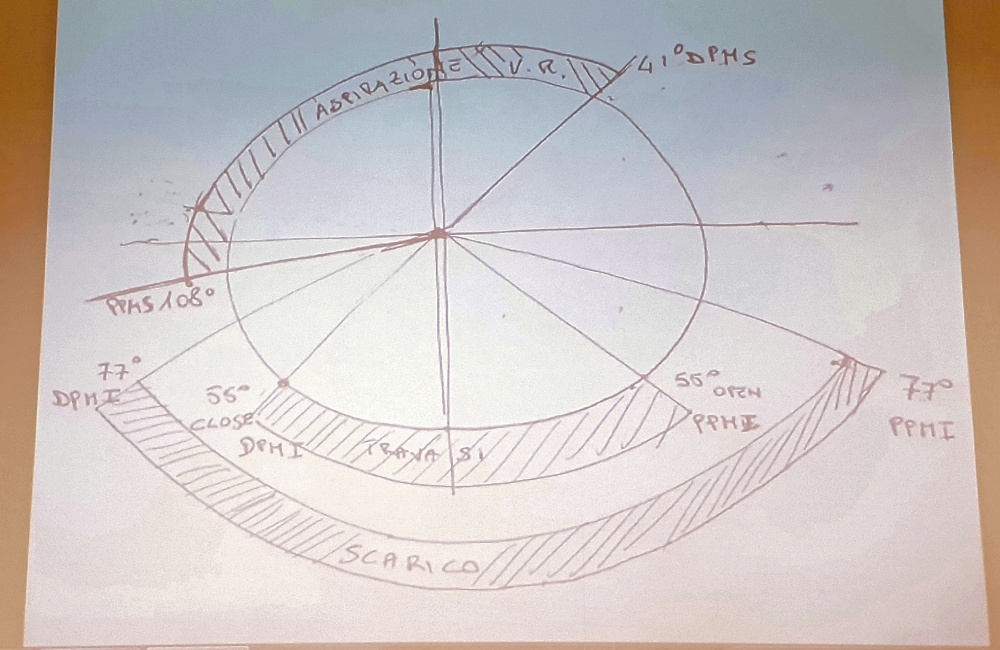 ASPIRAZIONE V.R.
41° DPMS
PPMS 108°
77°
DPMI
55°
CLOSE
DPMI
TRAVASI
55° OPEN
PPMI
77°
PPMI
SCARICO